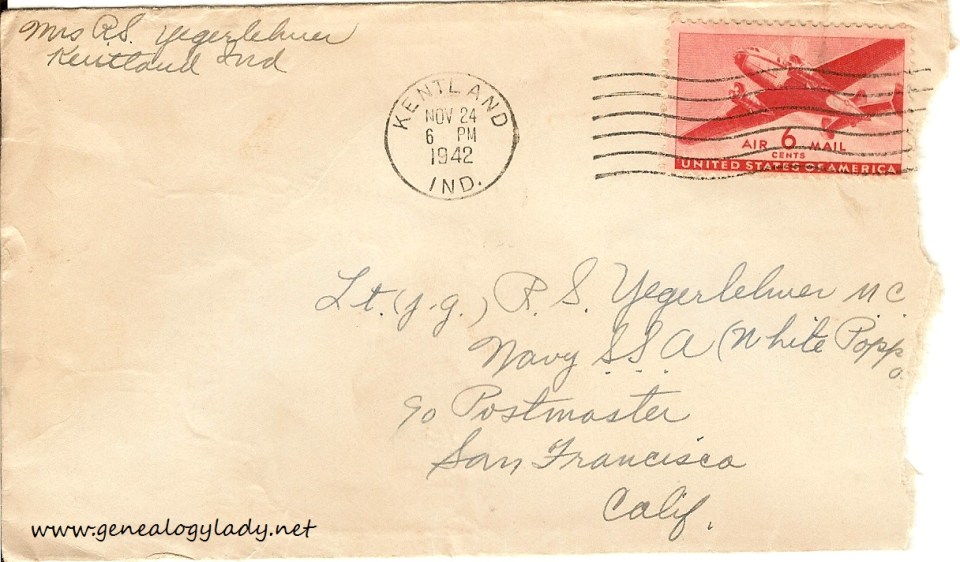 Mrs R.S. Yegerlehner
Kentland Ind
KENTLAND
NOV 24
6 PM
1942
IND.
AIR 6 MAIL
CENTS
UNITED STATES OF AMERICA
Lt. (j.g.) R. S. Yegerlehner MC
Navy S.S.A. (White Popp
c/o Postmaster
San Francisco
Calif.
www.genealogylady.net